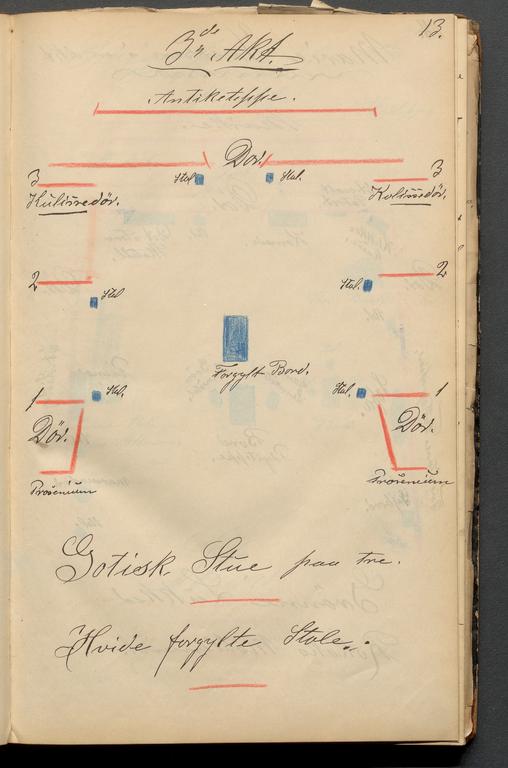 13.
3die Akt.
Antiketeppe.
Dør.
3 Stol Stol. 3
Kulissedør. Kulissedør.
2 Stol Stol. 2
Forgylt Bord.
1 Stol. Stol. 1
Dör. Dör.
Prosenium Prosenium
Gotisk Stue paa tre.
Hvide forgylte Stole.